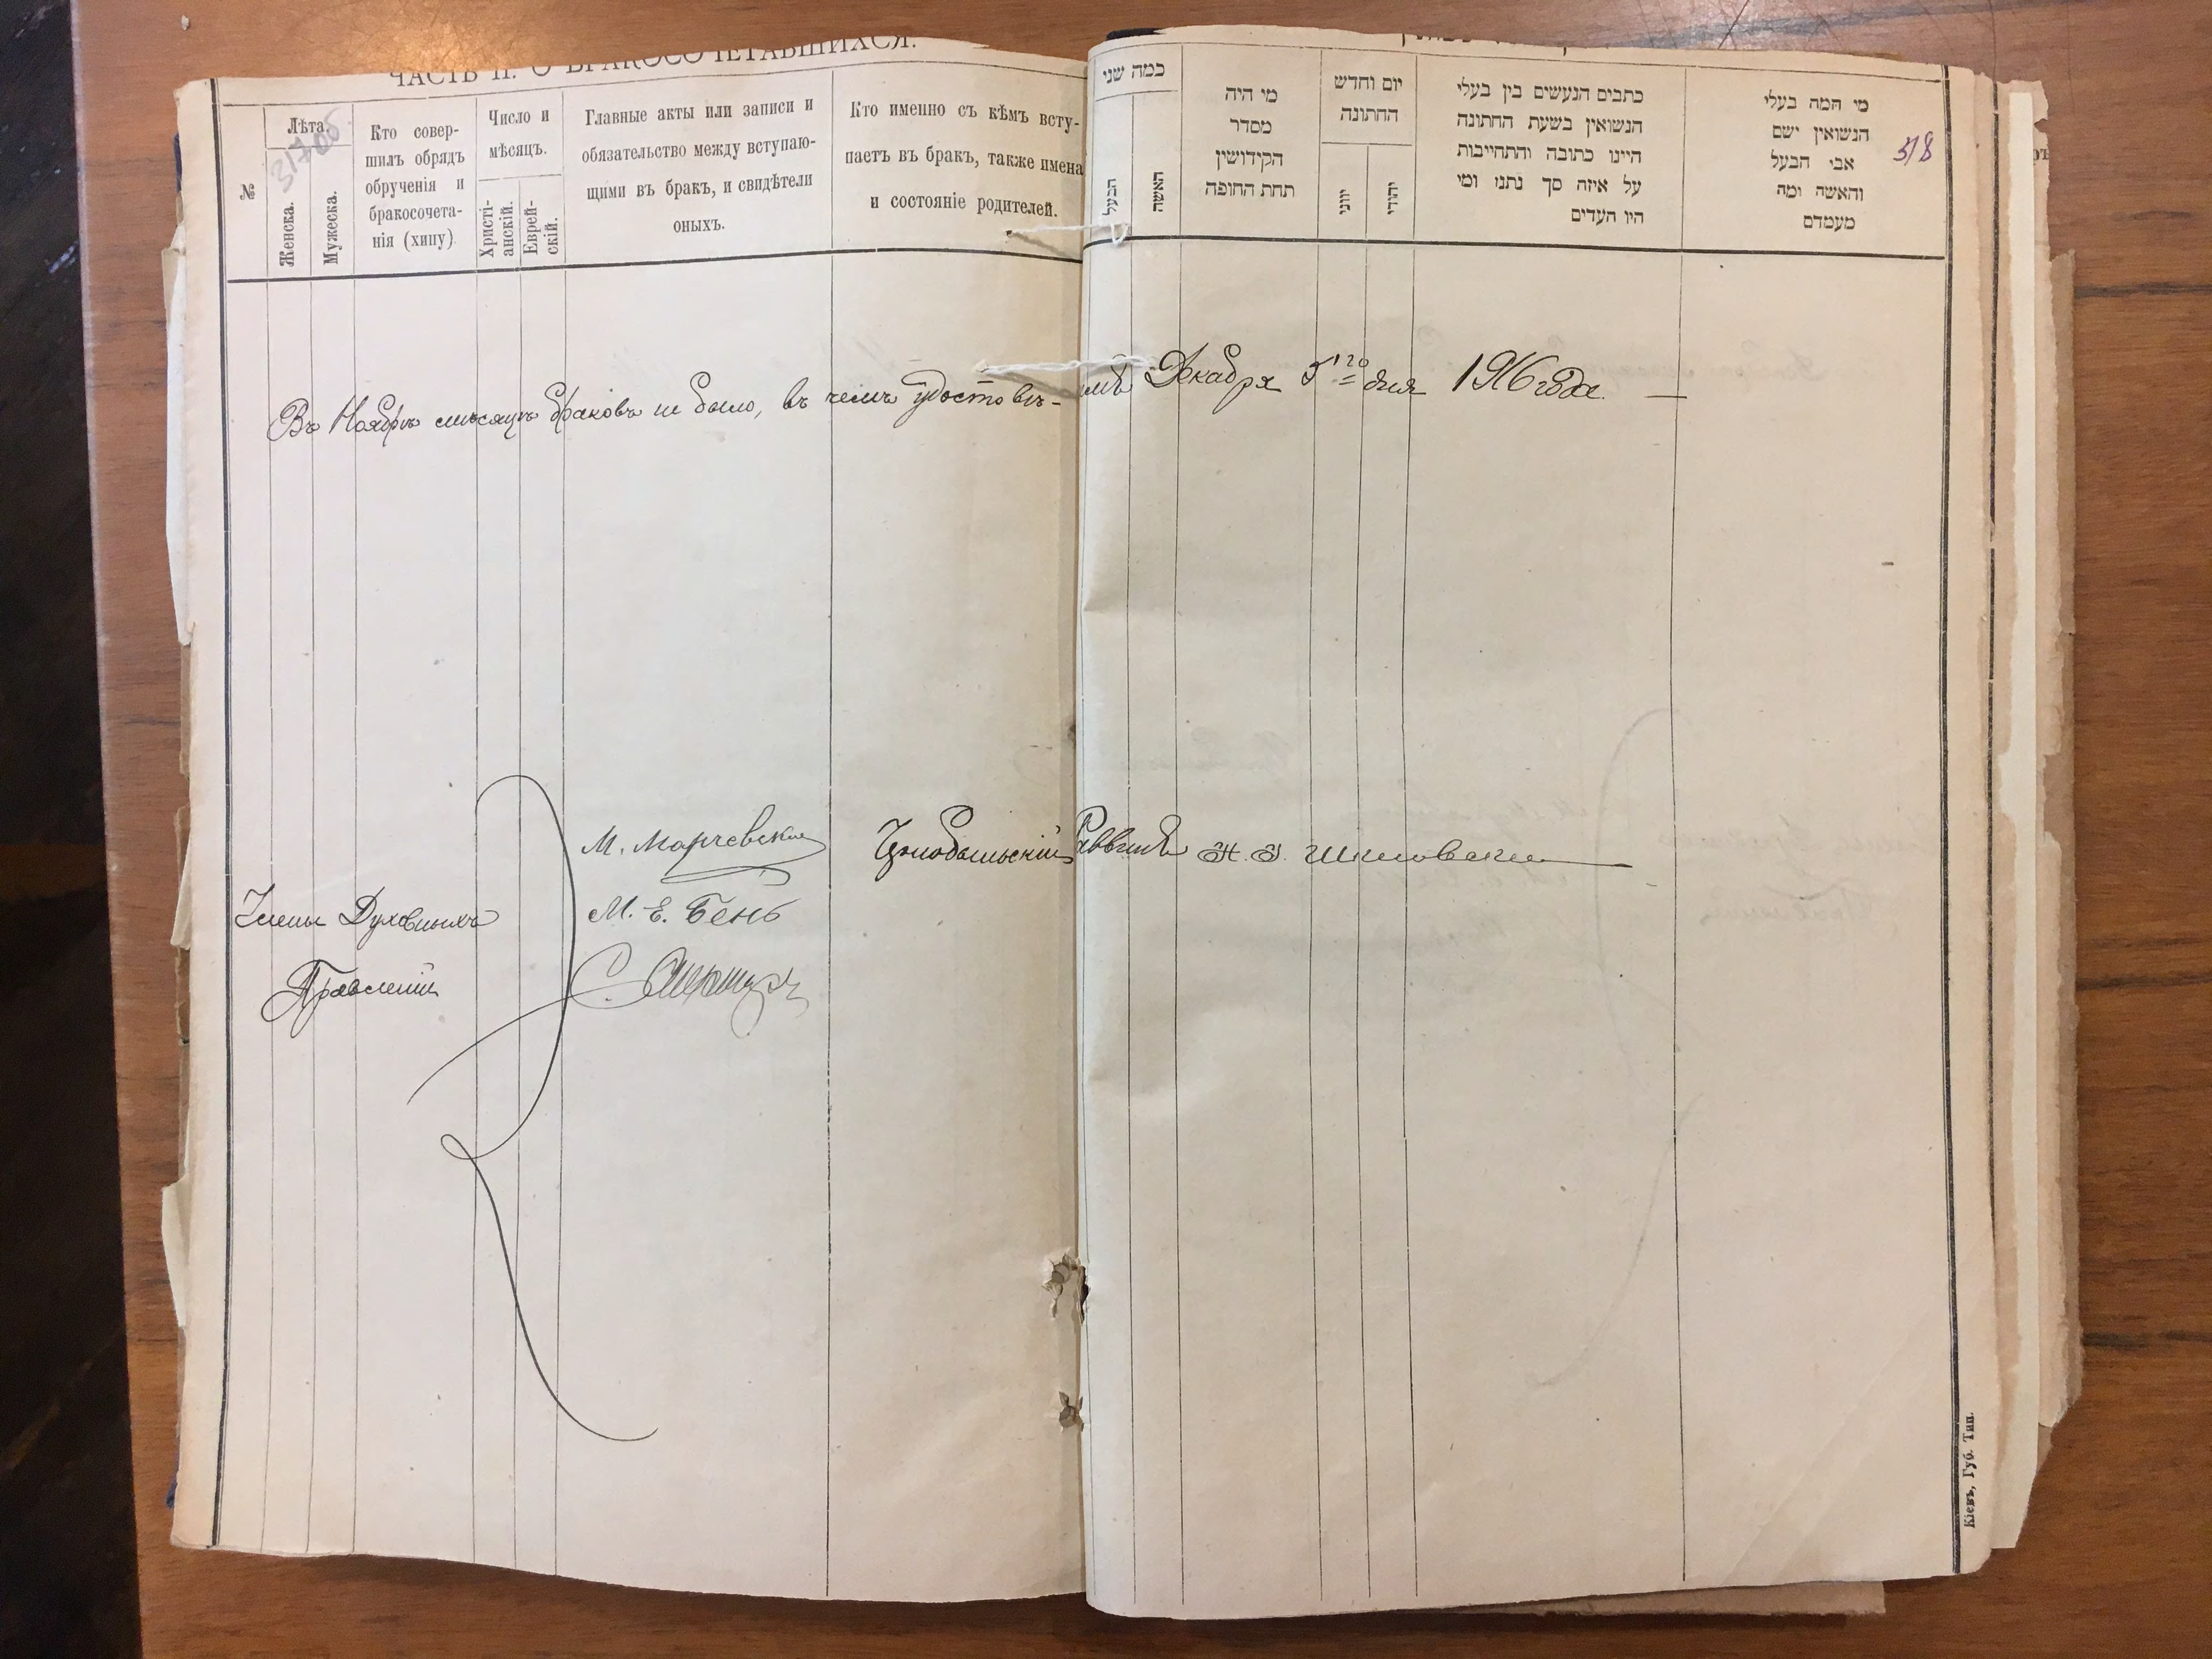 ЧАСТЬ II. О БРАКОСОЧЕТАВШИХСЯ.
№
Лѣта.
317об.
Женска.
Мужеска.
Кто совер-
шилъ обрядъ
обрученія и
бракосочета-
нія (хипу)
Число и
мѣсяцъ.
Христі-
анскій.
Еврей-
скій.
Главные акты или записи и
обязательство между вступаю-
щими въ бракъ, и свидѣтели
оныхъ.
Кто именно съ кѣмъ всту-
паетъ въ бракъ, также имена
и состояніе родителей.
כמה שני
הבעל
האשה
מי היה
מסדר
הקידושין
תחת החופה
יום וחדש
החתונה
יווני
יהודי
כתבים הנעשים בין בעלי
הנשואין בשעת החתונה
היינו כתובה והתחייבות
על איזה סך נתנו ומי
היו העדים
מי המה בעלי
הנשואין ושם
אבי הבעל
והאשה ומה
מעמדם
318
Въ Ноябрѣ мѣсяцѣ браковъ не было, въ чемъ удостовѣ-
Декабря 5го дня 1916 года.
М. Марчевскій
Чернобыльскій Раввинъ
Члены Духовныхъ
М. Е. Бень
Правленій
Кіевъ, Губ. Тип.